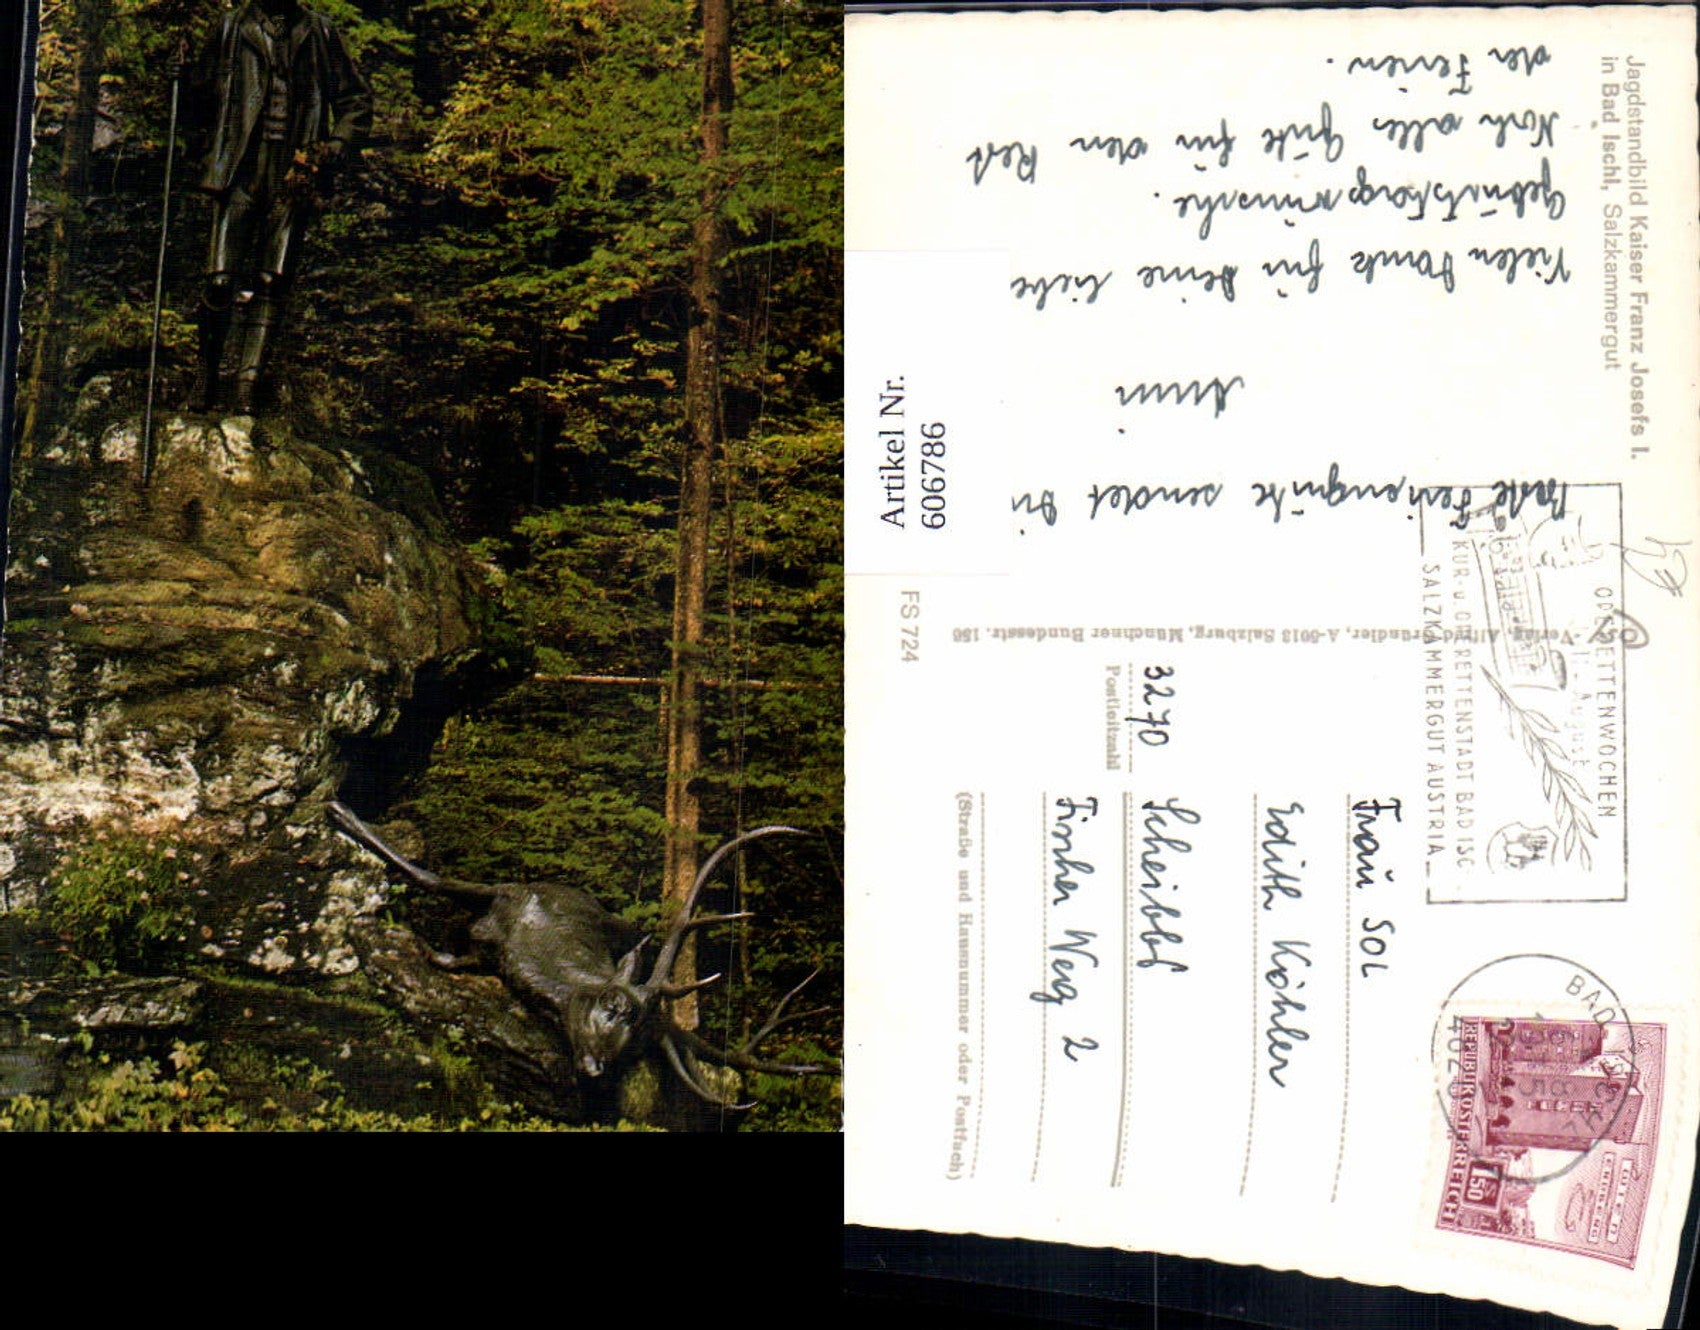 Jagdstandbild Kaiser Franz Josefs I.
in Bad Ischl, Salzkammergut
Beste Feriengrüße sendet Dir
Anni.
Vielen Dank für Deine liebe
Geburtstagswünsche.
Noch alles Gute für den Rest
der Ferien.
Artikel Nr.
606786
FS 724
Verlag, Alfred Gründler, A-5013 Salzburg, Münchner Bundesstr. 156
OPERETTENWOCHEN
JULI - AUGUST
KUR-u. OPERETTENSTADT BAD ISCHL
SALZKAMMERGUT AUSTRIA
BAD ISCHL
4820
REPUBLIK ÖSTERREICH
S 1.50
Frau SOL
Edith Köhler
3270 Scheibbs
Postleitzahl
Fischer Weg 2
(Straße und Hausnummer oder Postfach)